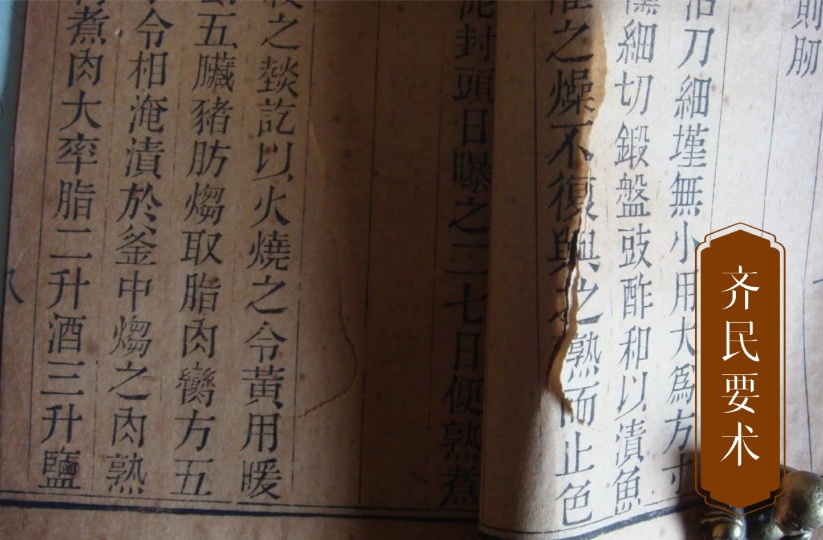 則肕
刀細墐無小用大為方寸
細切鍛盤豉酢和以漬魚
之燥不復與之熟而止色
泥封頭日曝之二七日便熟煮
之燅訖以火燒之令黃用暖
五臟豬肪煼取脂肉臠方五
令相淹漬於釜中煼之肉熟
煮肉大率脂二升酒三升鹽
齐民要术